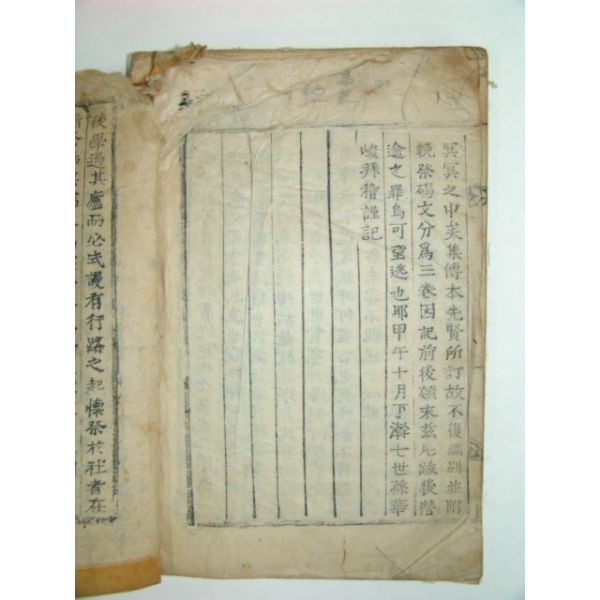 冥冥之中矣集傳本先賢所訂故不復識別並附
輓祭碣文分爲三卷因記前後顚末玆尾跋後潛
逾之罪烏可望逃也耶甲午十月下澣七世孫華
峻拜稽謹記
後學過其廬而必式謾有行路之起懷祭於社者在